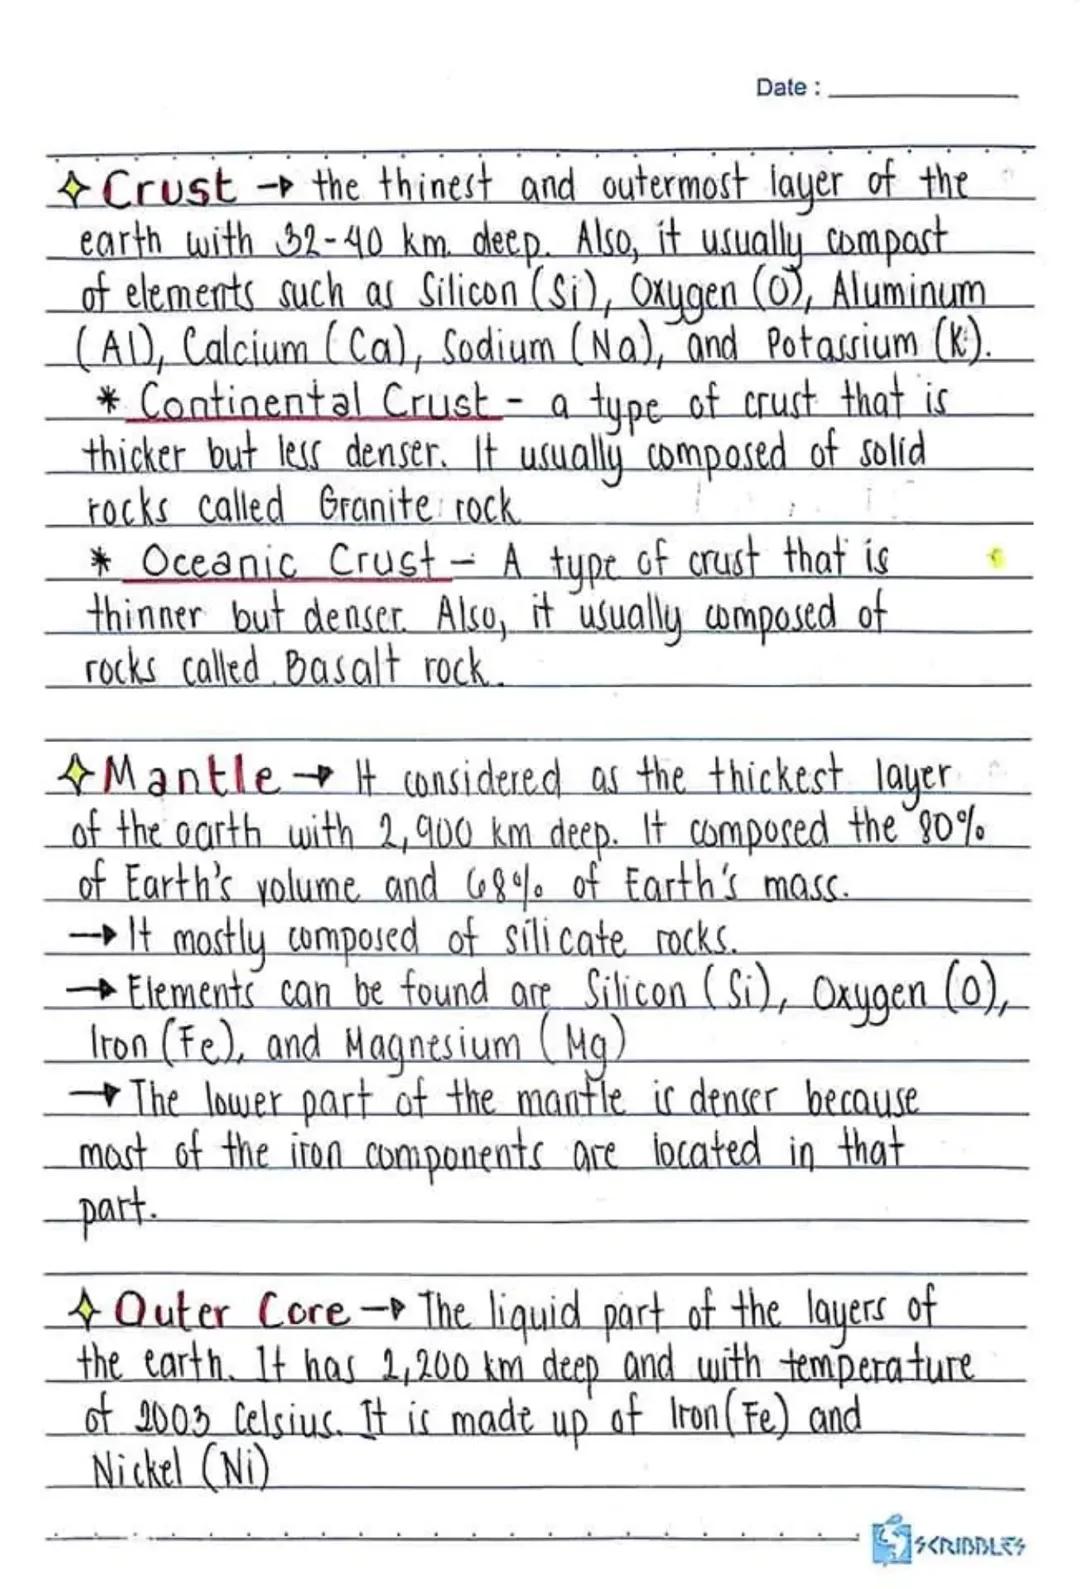 Date :
Crust → the thinest and outermost layer of the
earth with 32-40 km. deep. Also, it usually compost
of elements such as Silicon (Si), Oxygen (O), Aluminum
(Al), Calcium (Ca), Sodium (Na), and Potassium (K).
* Continental Crust - a type of crust that is
thicker but less denser. It usually composed of solid
rocks called Granite rock
* Oceanic Crust - A type of crust that is
thinner but denser. Also, it usually composed of
rocks called Basalt rock.
Mantle → It considered as the thickest layer
of the earth with 2,900 km deep. It composed the 80%
of Earth's volume and 68% of Earth's mass.
→ It mostly composed of silicate rocks.
→ Elements can be found are Silicon (Si), Oxygen (O),
Iron (Fe), and Magnesium (Mg)
→ The lower part of the mantle is denser because
most of the iron components are located in that
part.
Outer Core → The liquid part of the layers of
the earth. It has 2,200 km deep and with temperature
of 2003 Celsius. It is made up of Iron (Fe) and
Nickel (Ni)
SCRIBBLES